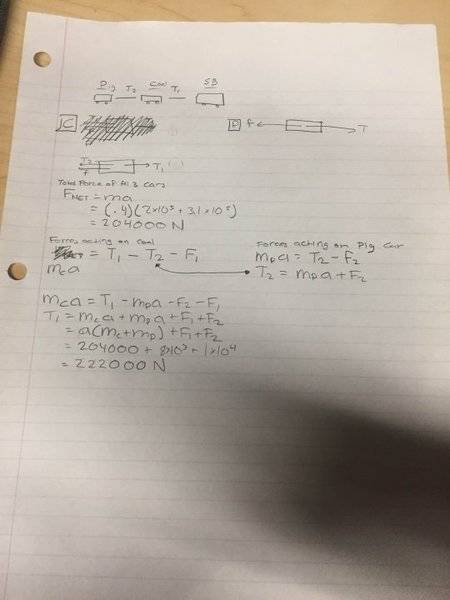 Pig T₂ Coal T₁ SB
C
P f T
T₂ f T₁
Total Force of All 3 cars
F_NET = ma
= (.4)(2×10⁵ + 3.1×10⁵)
= 204000 N
Forces acting on coal
= T₁ - T₂ - F₁
mca
Forces acting on Pig car
mpa = T₂ - F₂
T₂ = mpa + F₂
mca = T₁ - mpa - F₂ - F₁
T₁ = mca + mpa + F₁ + F₂
= a(mc + mp) + F₁ + F₂
= 204000 + 8×10³ + 1×10⁴
= 222000 N